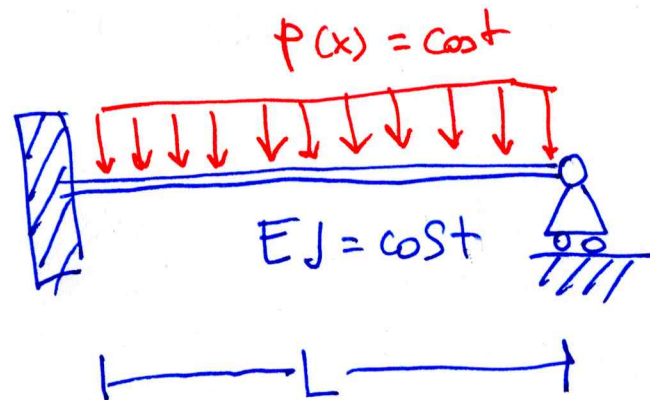 p(x) = cost
EJ = cost
L